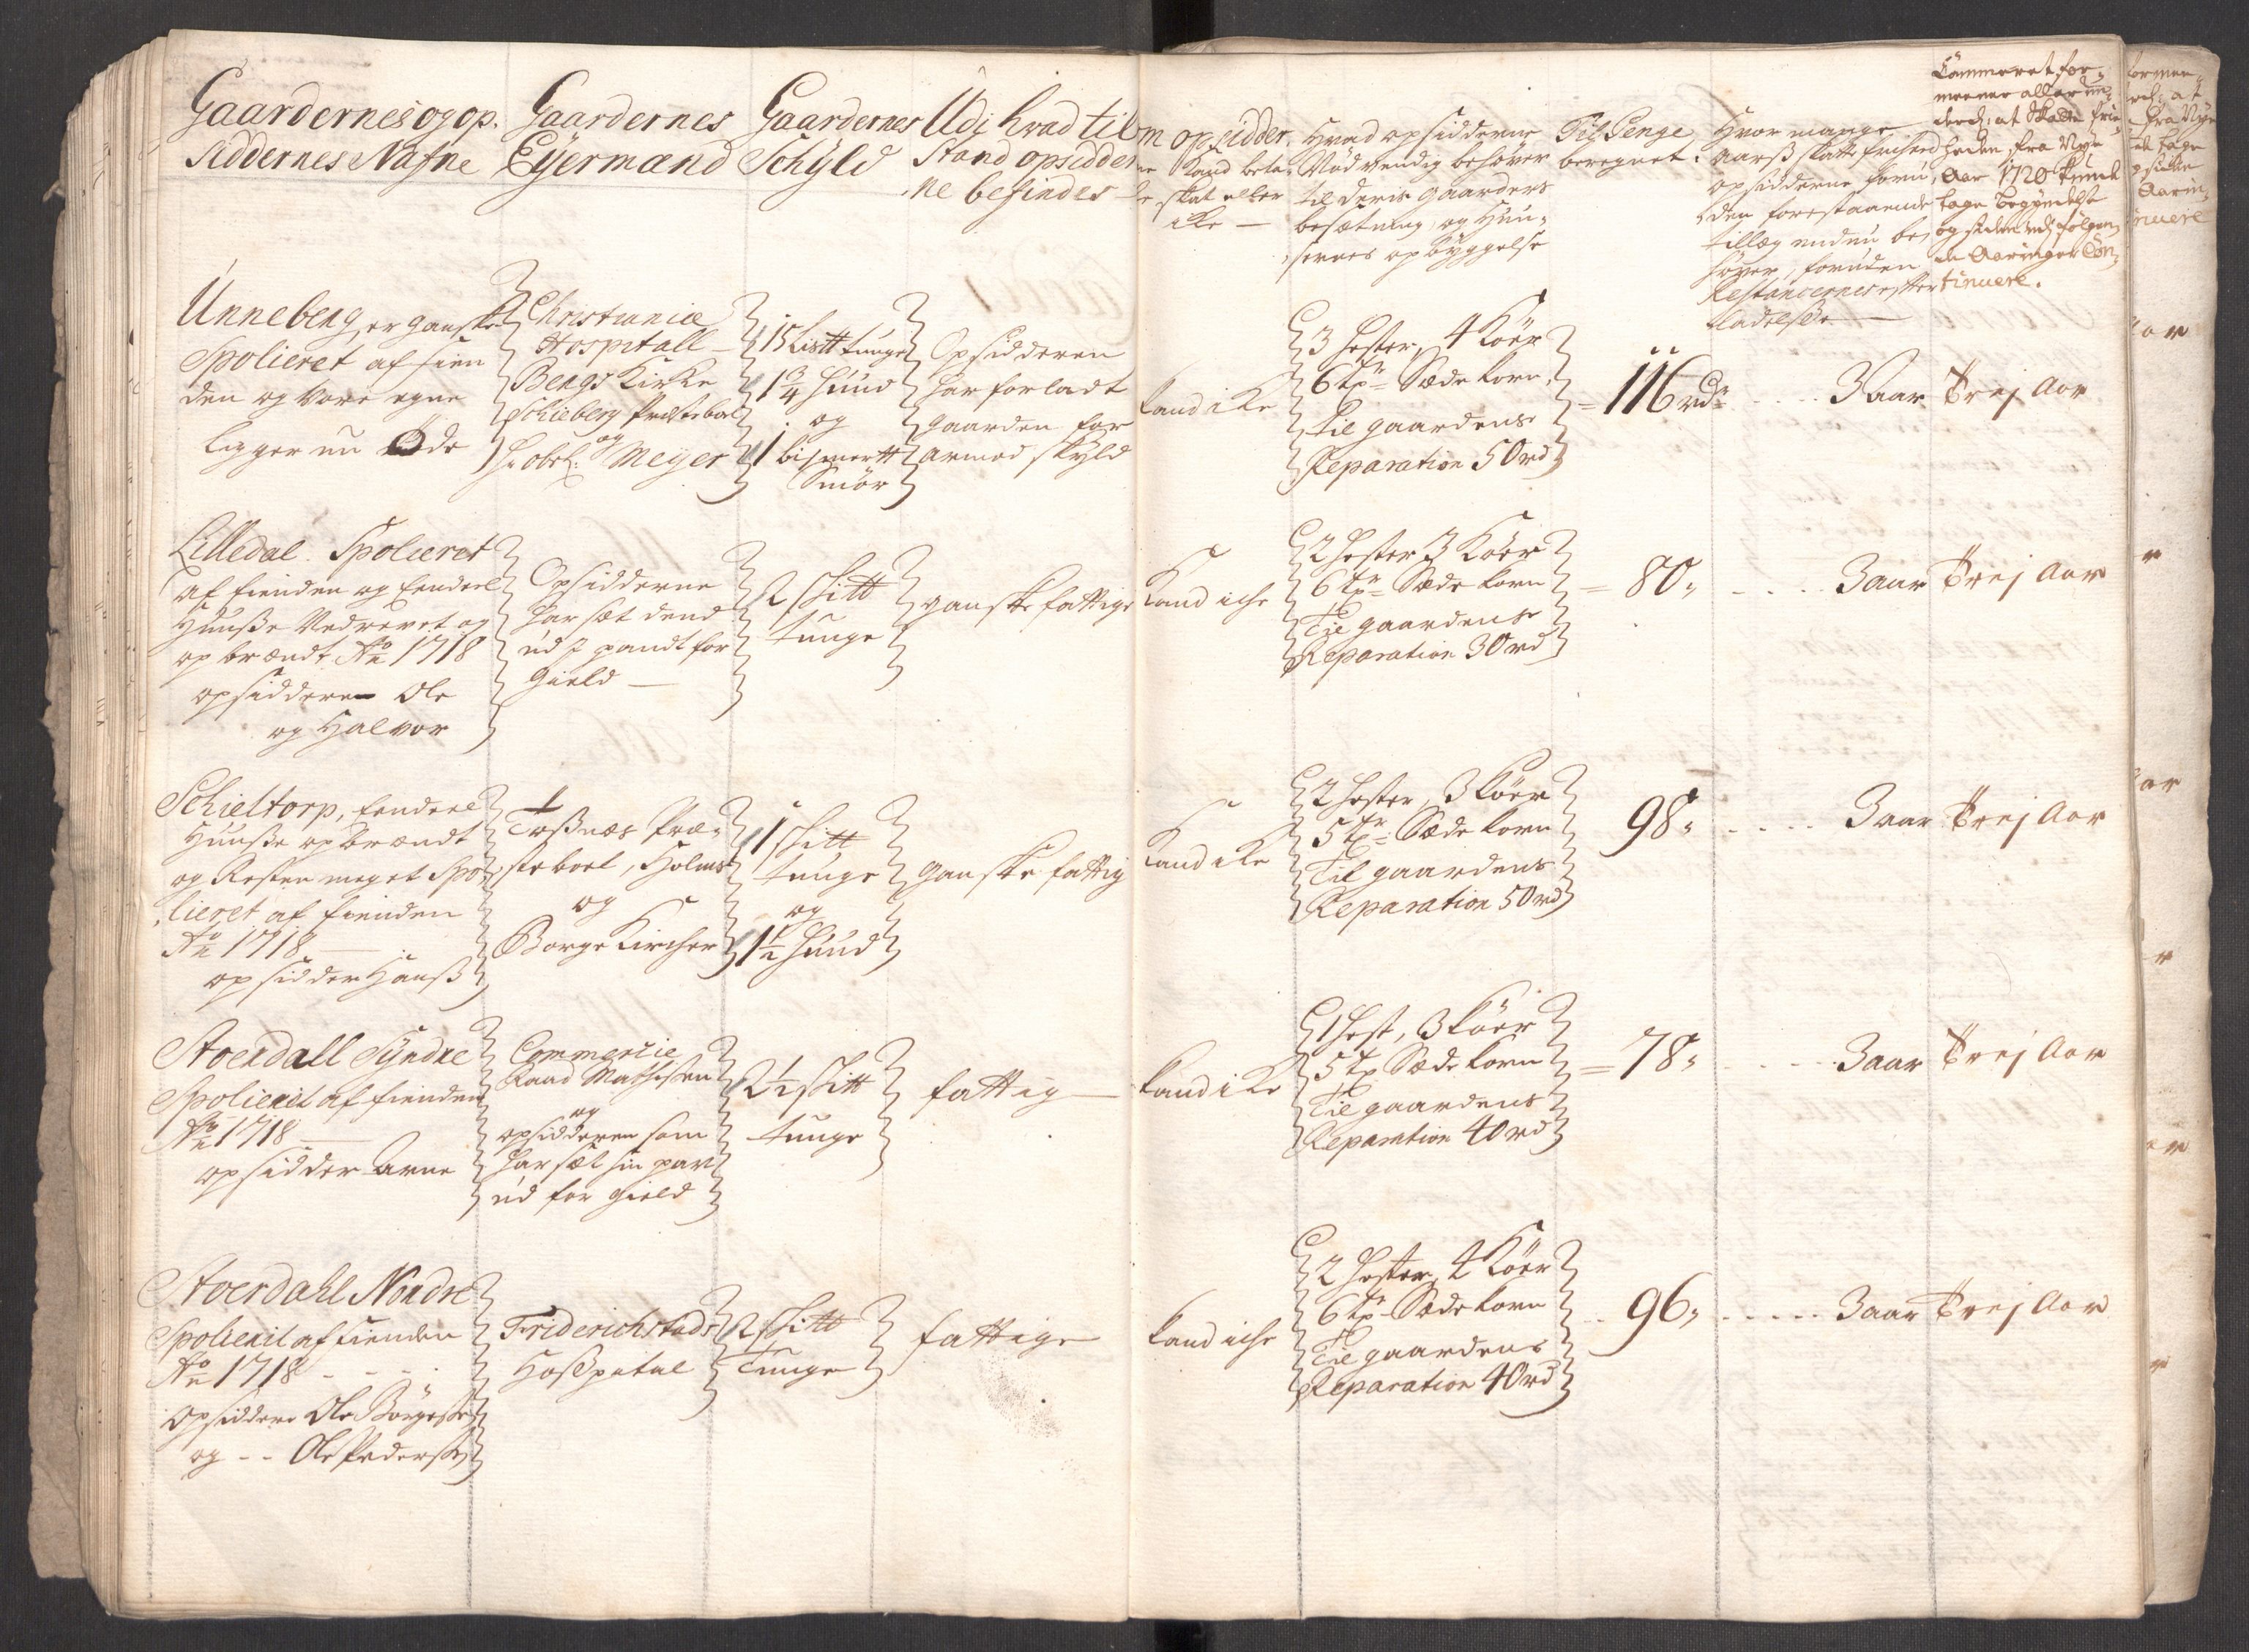 Gaardernes og op-
siddernes Nafne
Gaardernes
Eÿermænd
Gaardernes
Schÿld
Udj hvad til
Stand opsidder
ne befindes
m opsidder,
ne Kand beta-
skat eller
ikke
Hvad opsidderne
Nødvendig behøver
til deris gaarders
besætning og Huu-
sernes opbÿggelse
Til Penge
beregnet.
Hvor mange
aarß skatte frihed
opsidderne foru-
den forestaaende
tillæg endnu be-
høver, foruden
Restancernes efter
ladelse
Cammeret for-
meener allerun-
derd: at Skatte frie-
heden fra Nÿe
Aar 1720 kunde
tage begÿndelse
og siden udj følgen-
de Aaringer Con-
tinuere.
Unneberg, er ganske
Spolieret af fien
den og vore egne
ligger nu Øde
Christiania
Hospitall
Bergs Kirke
Schieberg Præstebol
og
Hr obrl: Meÿer
15 Lis℔ tunge
1 3/4 huud
og
1 bismer℔
Smør
Opsidderen
har forladt
gaarden for
armod skÿld
kand ike
3 Hester, 4 Køer
6 tr Sæde korn
til gaardens
Reparation 50 rd
116 rdr
3 Aar
Trej Aar
Lilledal. Spolieret
af fienden og Eendeel
Huuße Nedrevet og
op brændt Ao 1718
opsiddere Ole
og Halvor
Opsidderne
har sæt dend
ud I pandt for
Gield
2 skitt
tunge
ganske fattige
Kand iche
2 Hester 3 Køer
6 tr Sæde korn
Til gaardens
Reparation 30 rd
80,
3 aar
Trej Aar
Schieltorp, Eendeel
Huuße opbrændt
og Resten meget Spo
lieret af fienden
Ao 1718
opsidder Hanß
Toßnæs Præ-
steboel, Holms
og
Borge Kircher
1 skitt
tunge
og
1 1/2 huud
ganske fattig
Kand ike
2 Hester, 3 køer
5 tr Sæde korn
Til gaardens
Reparation 50 rd
98,
3 aar
Trej Aar
Stoerdall Sÿndre
Spolierit af fienden
Ao 1718
opsidder Arne
Commercie
Raad Mathisen
og
opsidderen som
har sæt sin part
ud for gield
2 1/2 skitt
tunge
fattig
kand ike
1 Hest, 3 køer
5 tr Sæde korn
Til gaardens
Reparation 40 rd
78,
3 aar
Trej Aar
Stoerdahl Nordre
Spolierit af fienden
Ao 1718
Opsiddere Ole Børgesen
og -- Ole Pedersen
Friderichstads
Hospital
2 skitt
Tunge
fattige
kand iche
2 Hester, 4 Køer
6 tr Sæde korn
Til gaardens
Reparation 40 rd
96,
3 aar
Trej Aar